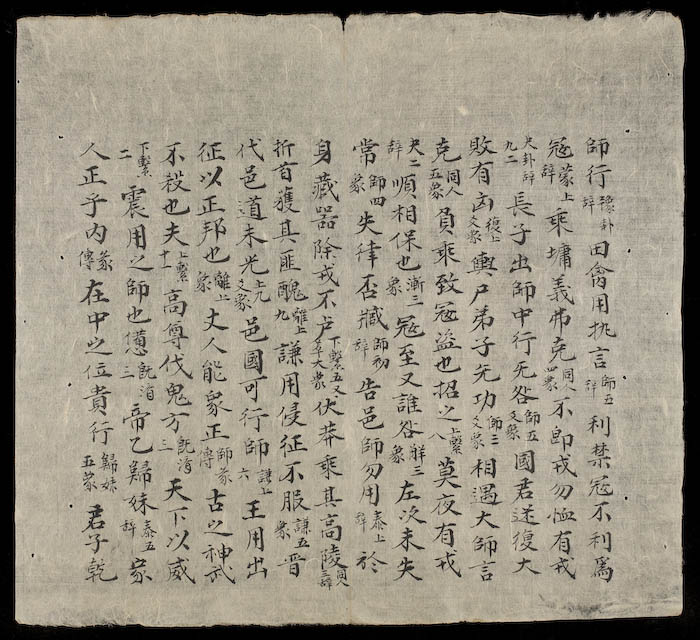 師行豫卦辭田禽用执言師五辭利禁寇不利爲
寇蒙上辭乘墉義弗克同人四象不即戎勿恤有戎
夬卦辭九二長子出師中行无咎師五爻象國君迷復大
敗有凶復上爻象輿尸弟子无功師三爻象相遇大師言
克同人五象負乘致寇盜也招之上繫八莫夜有戎
夬二辭順相保也漸三象寇至又誰咎解三象左次未失
常師四象失律否臧師初辭告邑師勿用泰上辭於
身藏器除戎不虞下繫五又萃大象伏莽乘其高陵同人三辭
折首獲其匪醜離上九謙用侵征不服謙五象晉
伐邑道未光上九爻象邑國可行師謙上六王用出
征以正邦也離上象丈人能衆正師彖傳古之神武
不殺也夫上繫十一高尊伐鬼方既濟三天下以威
下繫二震用之師也憊既濟三帝乙歸妹泰五辭家
人正乎內彖傳在中之位貴行歸妹五象君子乾